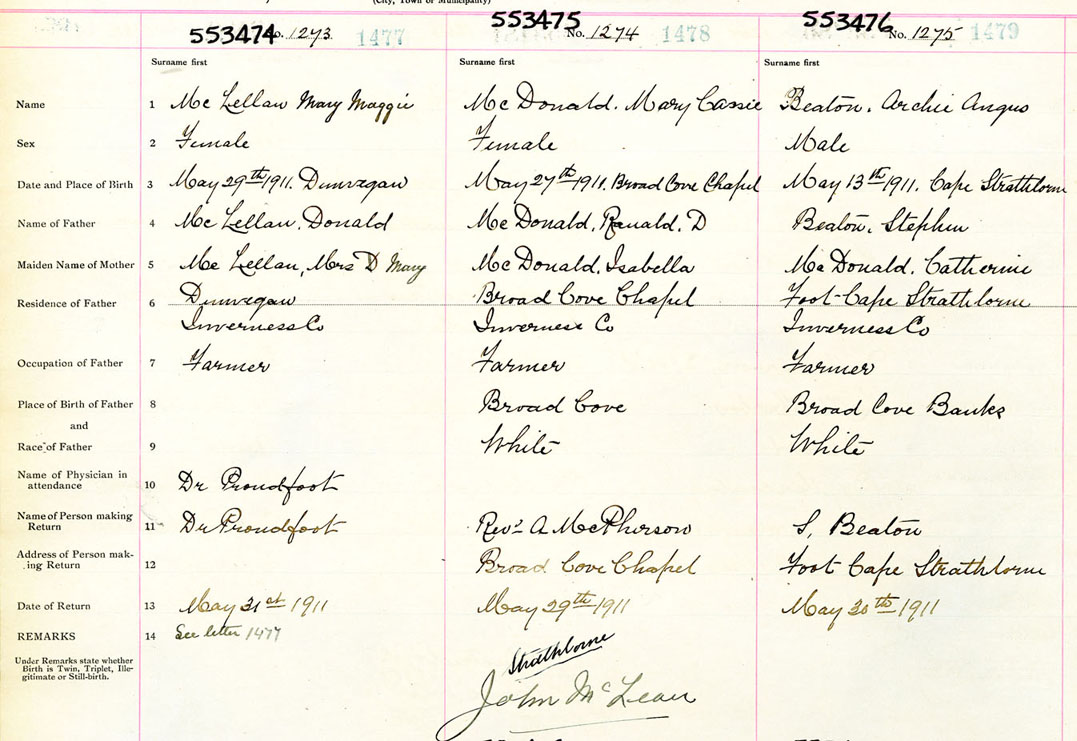 (City, Town or Municipality)
553474 No. 1273 1477
553475 No. 1274 1478
553476 No. 1275 1479
Surname first Surname first Surname first
Name 1 Mc Lellan Mary Maggie Mc Donald. Mary Cassie Beaton. Archie Angus
Sex 2 Female Female Male
Date and Place of Birth 3 May 29th 1911. Dunvegan May 27th 1911. Broad Cove Chapel May 13th 1911. Cape Strathlorne
Name of Father 4 Mc Lellan. Donald Mc Donald, Ranald. D Beaton. Stephen
Maiden Name of Mother 5 Mc Lellan, Mrs D Mary Mc Donald. Isabella Mc Donald. Catherine
Residence of Father 6 Dunvegan Broad Cove Chapel Foot-Cape Strathlorne
Inverness Co Inverness Co Inverness Co
Occupation of Father 7 Farmer Farmer Farmer
Place of Birth of Father 8 Broad Cove Broad Cove Banks
and
Race of Father 9 White White
Name of Physician in
attendance 10 Dr Proudfoot
Name of Person making
Return 11 Dr Proudfoot Revd A McPherson S. Beaton
Address of Person mak-
ing Return 12 Broad Cove Chapel Foot Cape Strathlorne
Date of Return 13 May 31st 1911 May 29th 1911 May 30th 1911
REMARKS 14 See letter 1477
Under Remarks state whether
Birth is Twin, Triplet, Ille-
gitimate or Still-birth.
Strathlorne
John McLean